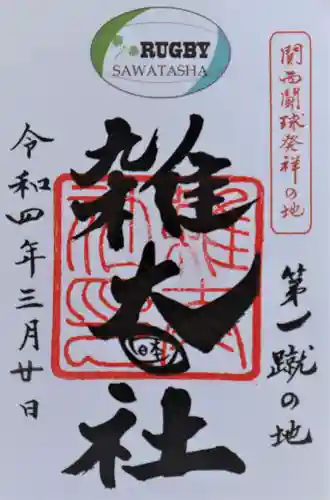 RUGBY
SAWATASHA
関西闘球発祥の地
第一蹴の地
雑太社
日本
令和四年三月廿日